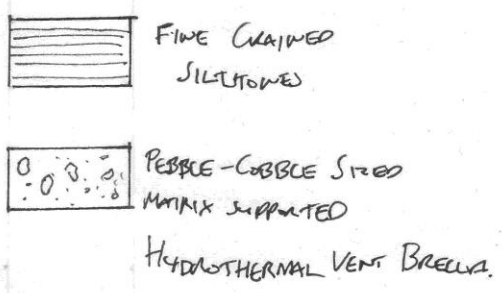 FINE GRAINED
SILTSTONES
PEBBLE-COBBLE SIZED
MATRIX SUPPORTED
HYDROTHERMAL VENT BRECCIA.